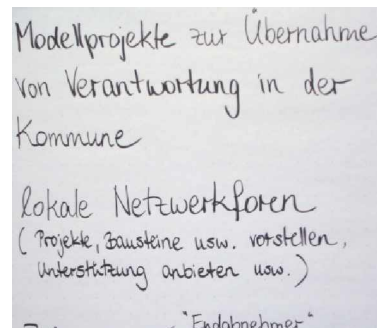 Modellprojekte zur Übernahme
von Verantwortung in der
Kommune
lokale Netzwerkforen
(Projekte, Bausteine usw. vorstellen,
Unterstützung anbieten usw.)
"Endabnehmer"